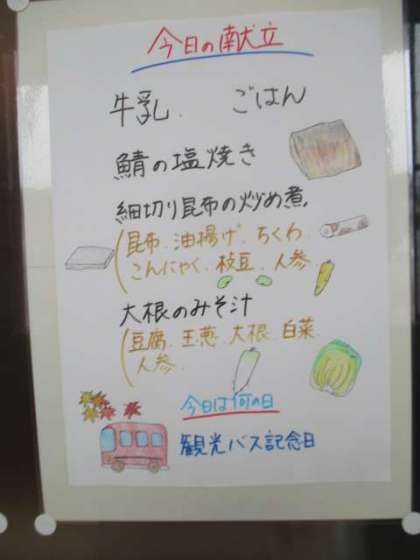 今日の献立
牛乳. ごはん
鯖の塩焼き
細切り昆布の炒め煮.
(昆布. 油揚げ. ちくわ.
こんにゃく. 枝豆. 人参.
大根のみそ汁
(豆腐. 玉葱. 大根. 白菜.
人参.
今日は何の日
観光バス記念日